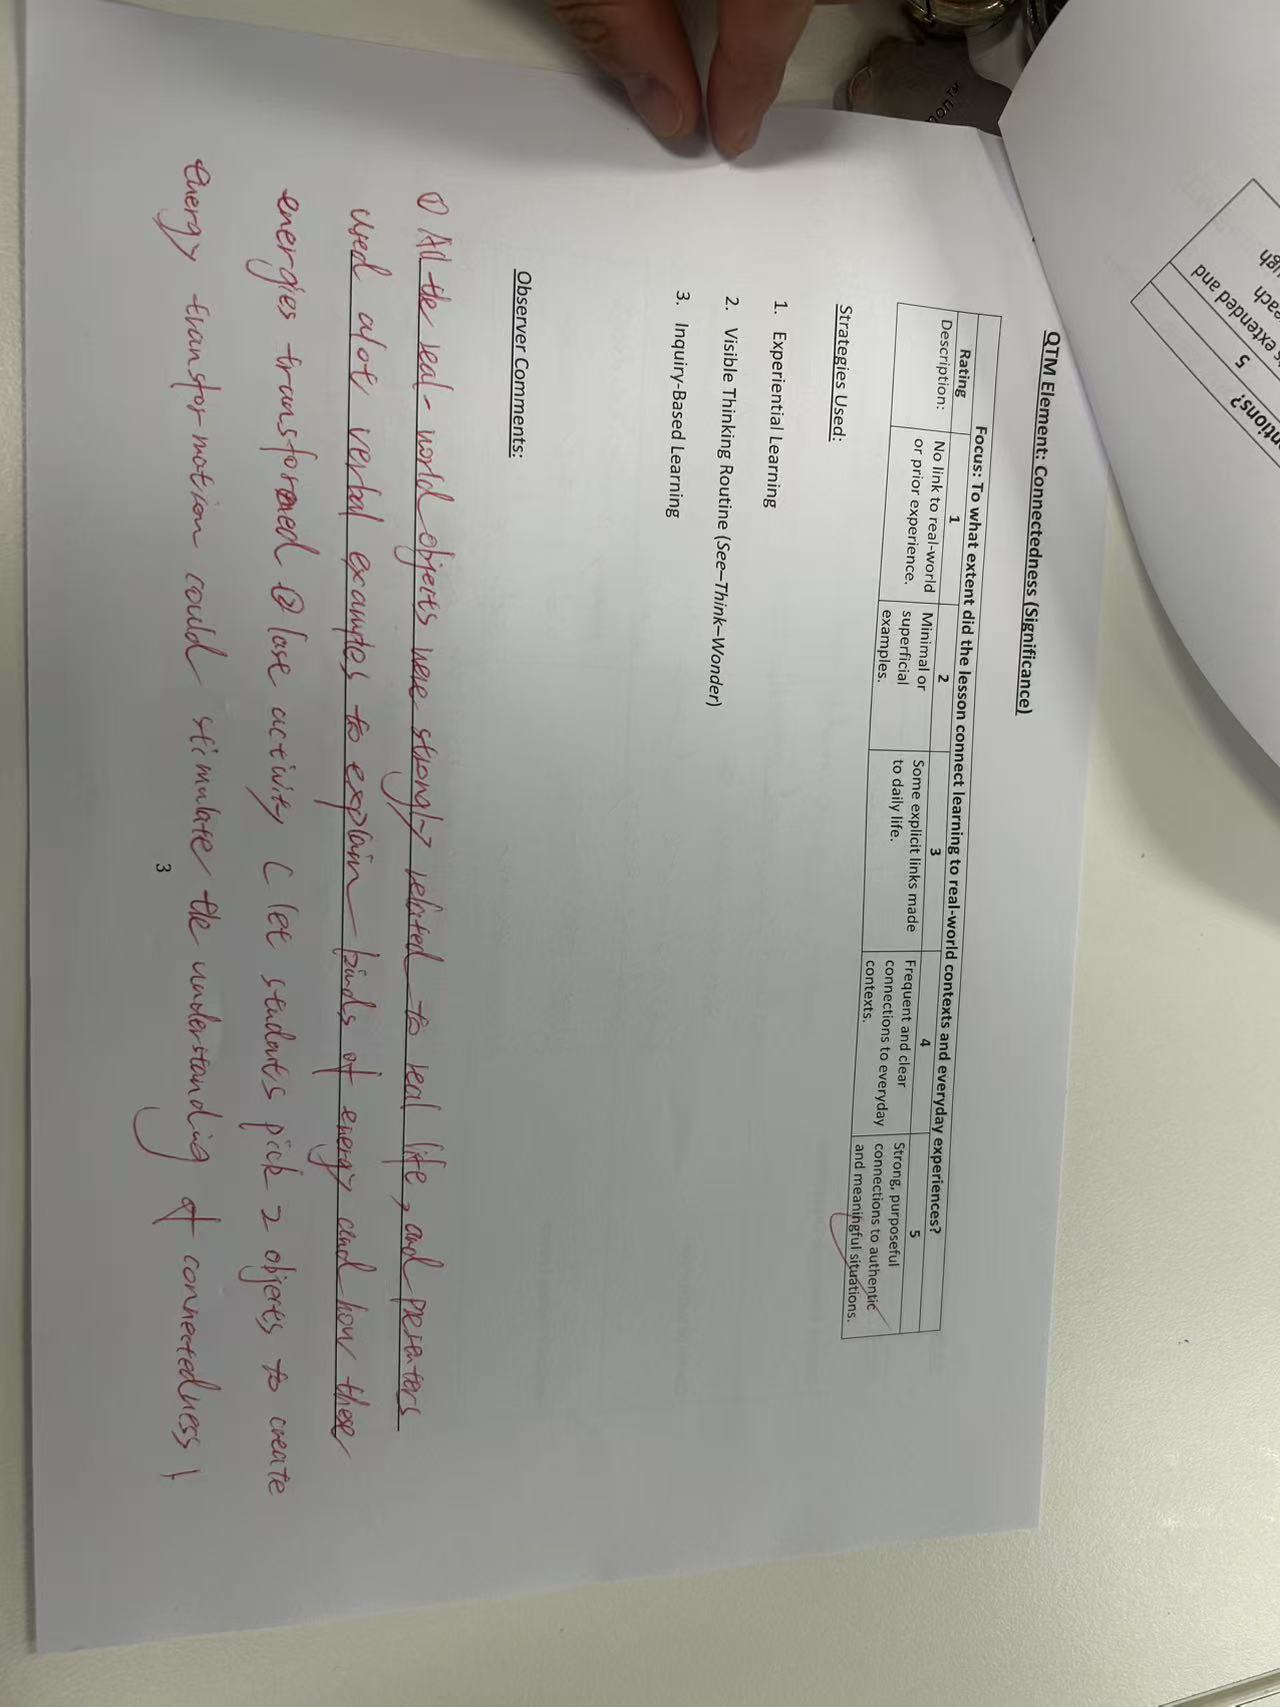 QTM Element: Connectedness (Significance)
Focus: To what extent did the lesson connect learning to real-world contexts and everyday experiences?
Rating 1 2 3 4 5
Description: No link to real-world or prior experience.
Minimal or superficial examples.
Some explicit links made to daily life.
Frequent and clear connections to everyday contexts.
Strong, purposeful connections to authentic and meaningful situations.
Strategies Used:
1. Experiential Learning
2. Visible Thinking Routine (See–Think–Wonder)
3. Inquiry-Based Learning
Observer Comments:
① All the real-world objects were strongly related to real life, and presenters
used alot verbal examples to explain kinds of energy and how these
energies transformed ② last activity (let students pick 2 objects to create
energy transformation could stimulate the understanding of connectedness!
3
ntions?
5
s extended and
each
ugh
mon™